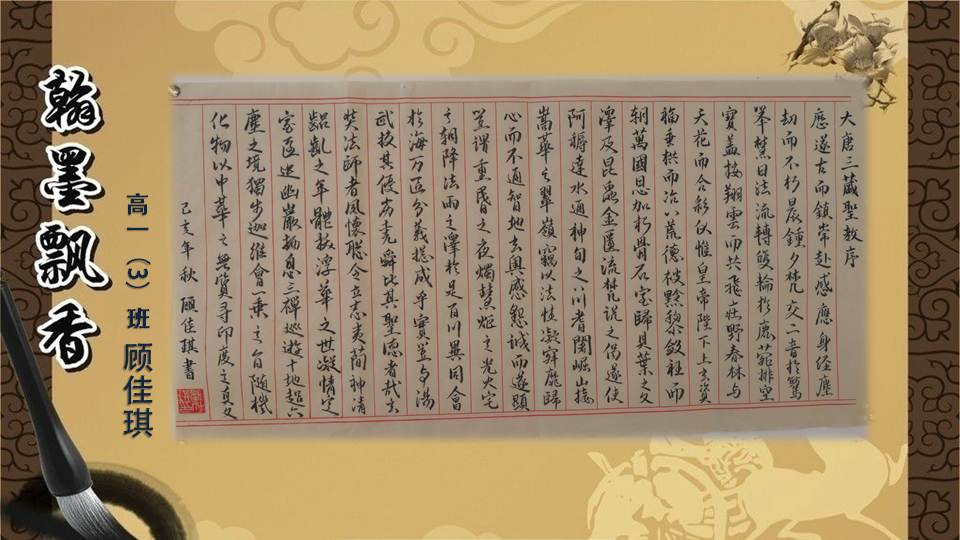 翰墨飘香
高一（3）班 顾佳琪
大唐三藏聖教序
歷遂古而鎮常赴感應身經塵
劫而不朽晨鍾夕梵交二音於鷲
峯慧日法流轉雙輪於鹿菀排空
寶蓋接翔雲而共飛莊野春林与
天花而合彩伏惟皇帝陛下上玄資
福垂拱而治八荒德被黔黎斂衽而
朝萬國恩加朽骨石室歸貝葉之文
澤及昆蟲金匱流梵說之偈遂使
阿耨達水通神甸之川耆闍崛山接
嵩華之翠嶺竊以法性凝寂靡歸
心而不通智地玄奧感懇誠而遂顯
豈謂重昏之夜燭慧炬之光火宅
之朝降法雨之澤於是百川異同會
於海万區分義總成乎實豈与湯
武校其優劣堯舜比其聖德者哉玄
奘法師者夙懷聡令立志夷簡神清
齠齔之年體拔浮華之世凝情定
室匿迹幽巖栖息三禪巡遊十地超六
塵之境獨步迦維會一乘之旨随機
化物以中華之無質尋印度之真文
己亥年秋 顾佳琪書